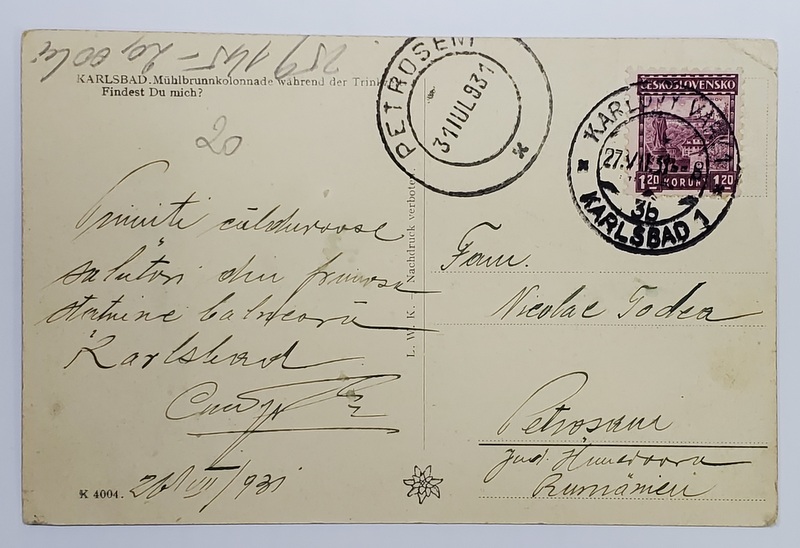 259145 - 20,00 lei
KARLSBAD. Mühlbrunnkolonnade während der Trink
Findest Du mich?
20
PETROSENI
31 IUL 931
ČESKOSLOVENSKO
1.20 KORUNY 1.20
KARLOVY VARY 1
27.VII.31
3b
KARLSBAD 1
Primiti călduroase
salutări din frumoasa
statiune balneară
Karlsbad
L. W. K. - Nachdruck verboten
Fam.
Nicolae Todea
Petroseni
Jud. Hunedoara
Rumänien
K 4004.
26/VII/931